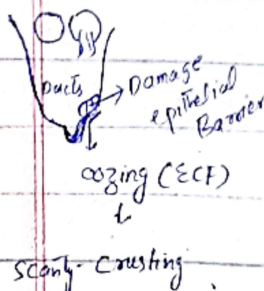 Ducts
Damage
epithelial
Barrier
oozing (ECF)
Scanty Crusting